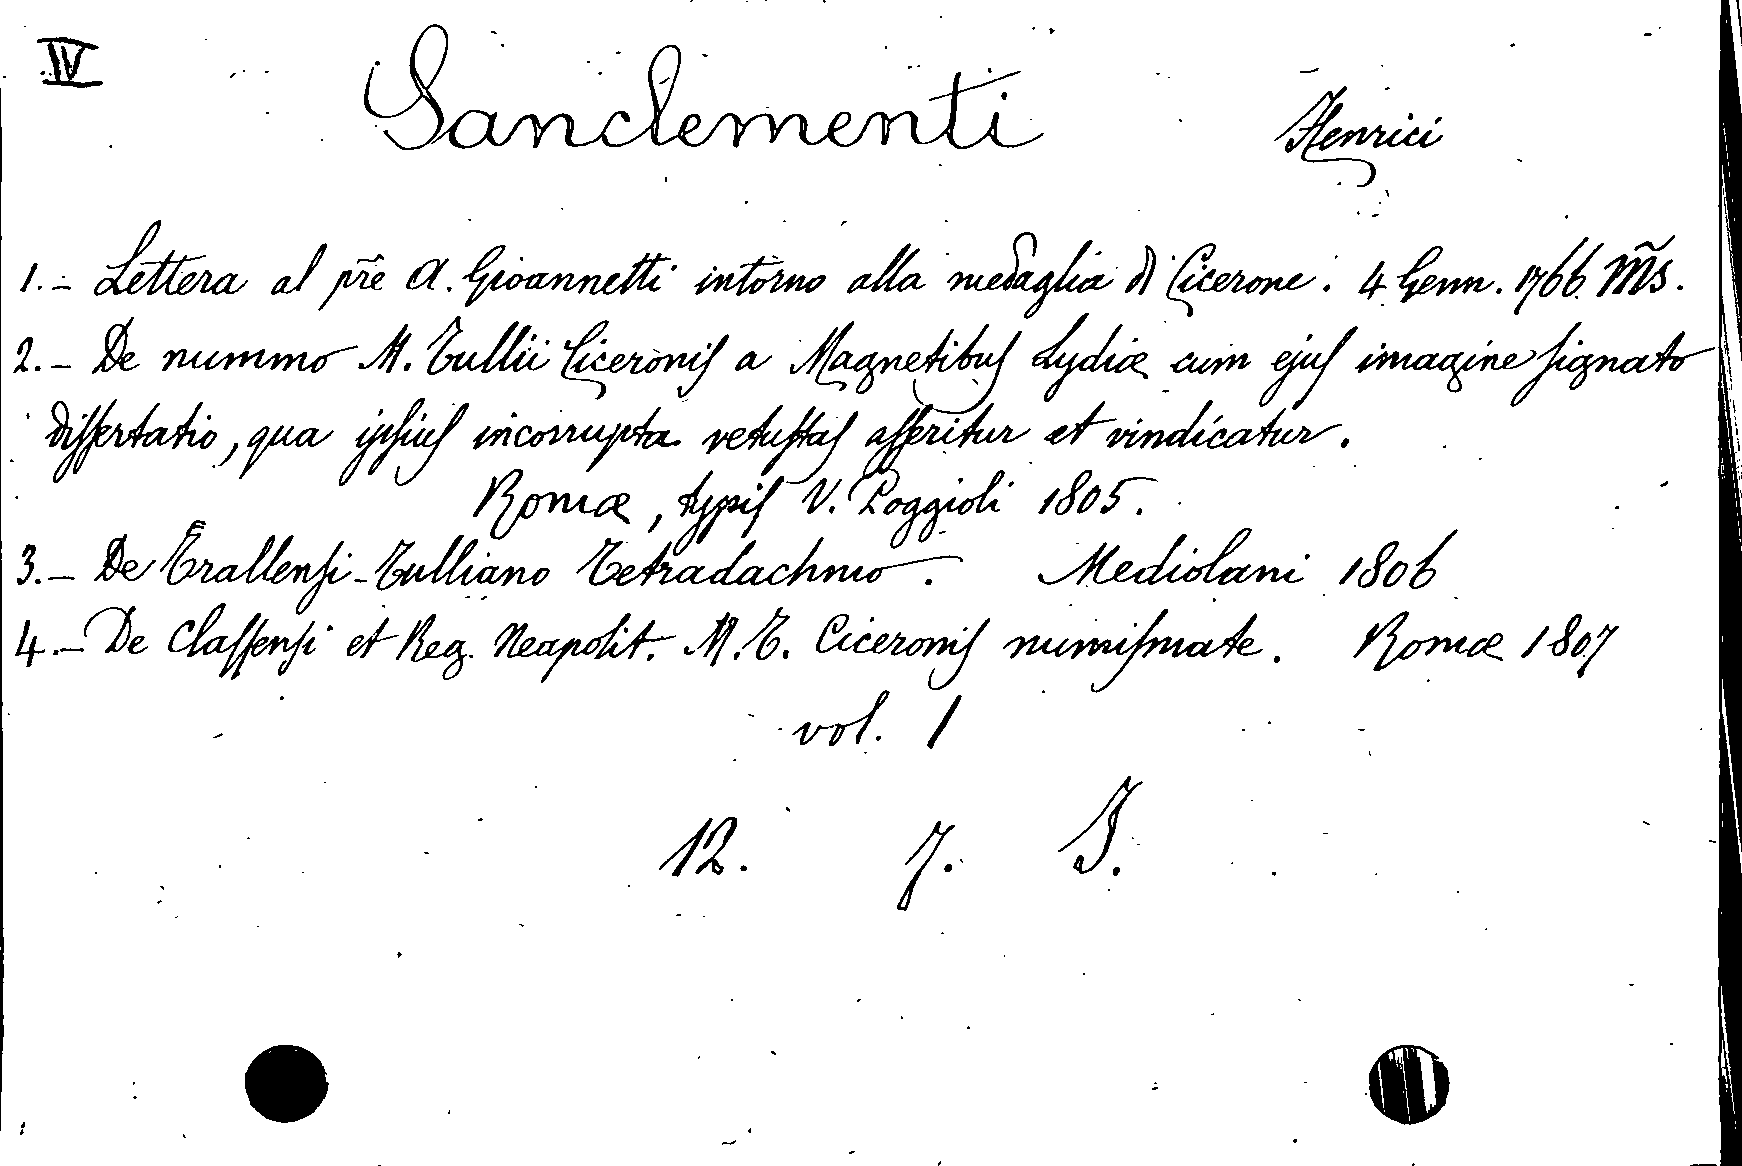 IV
Sanclementi Henrici
1. - Lettera al pr̃e A. Gioannetti intorno alla medaglia di Cicerone. 4 Genn. 1766. M̃s.
2. - De nummo M. Tullii Ciceronis a Magnetibus Lydiæ cum ejus imagine signato
dissertatio, qua ipsius incorrupta vetustas asseritur et vindicatur.
Romæ, typis V. Poggioli 1805.
3. - De Trallensi-Tulliano Tetradachmo. Mediolani 1806
4. - De Classensi et Reg. Neapolit. M. T. Ciceronis numismate. Romæ 1807
vol. 1
12. 7. I.